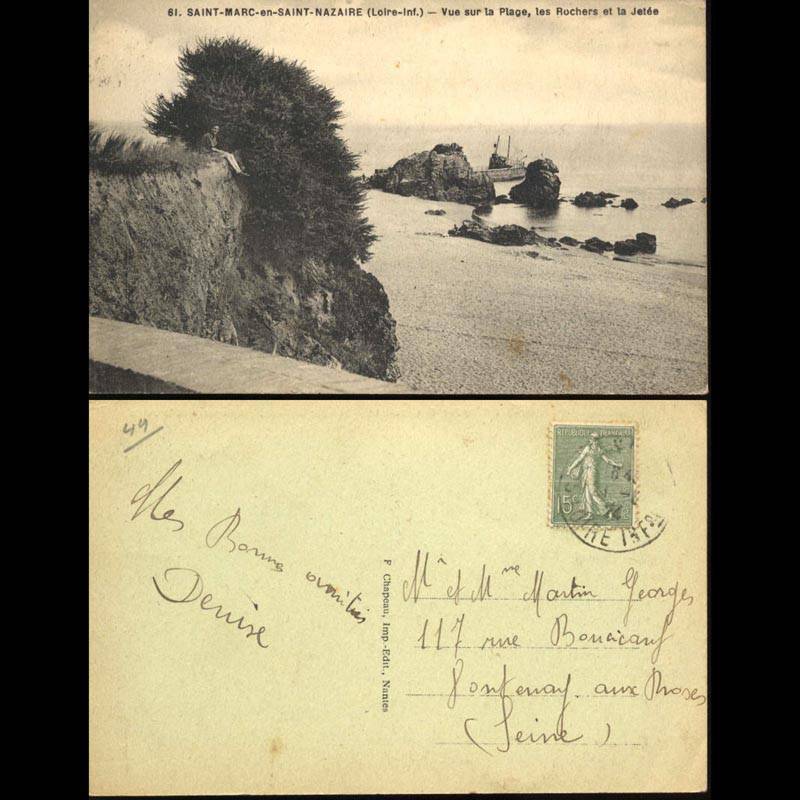 61. SAINT-MARC-en-SAINT-NAZAIRE (Loire-Inf.) — Vue sur la Plage, les Rochers et la Jetée
44
REPUBLIQUE FRANÇAISE
15c
RE INFRE
Mes Bonnes amitiés
Denise
P Chapeau, Imp.-Edit., Nantes
Mr et Mme Martin Georges
117 rue Boucicaut
Fontenay aux Roses
(Seine)